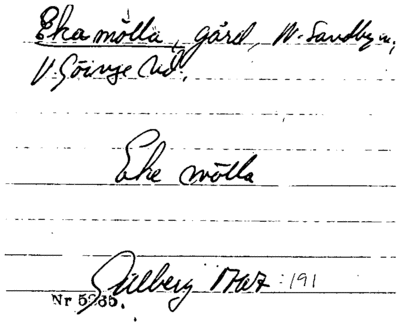 Eka mölla, gård, N. Sandby sn,
V. Göinge hd.
Eke mölla
Gillberg 1767 : 191
Nr 5235.